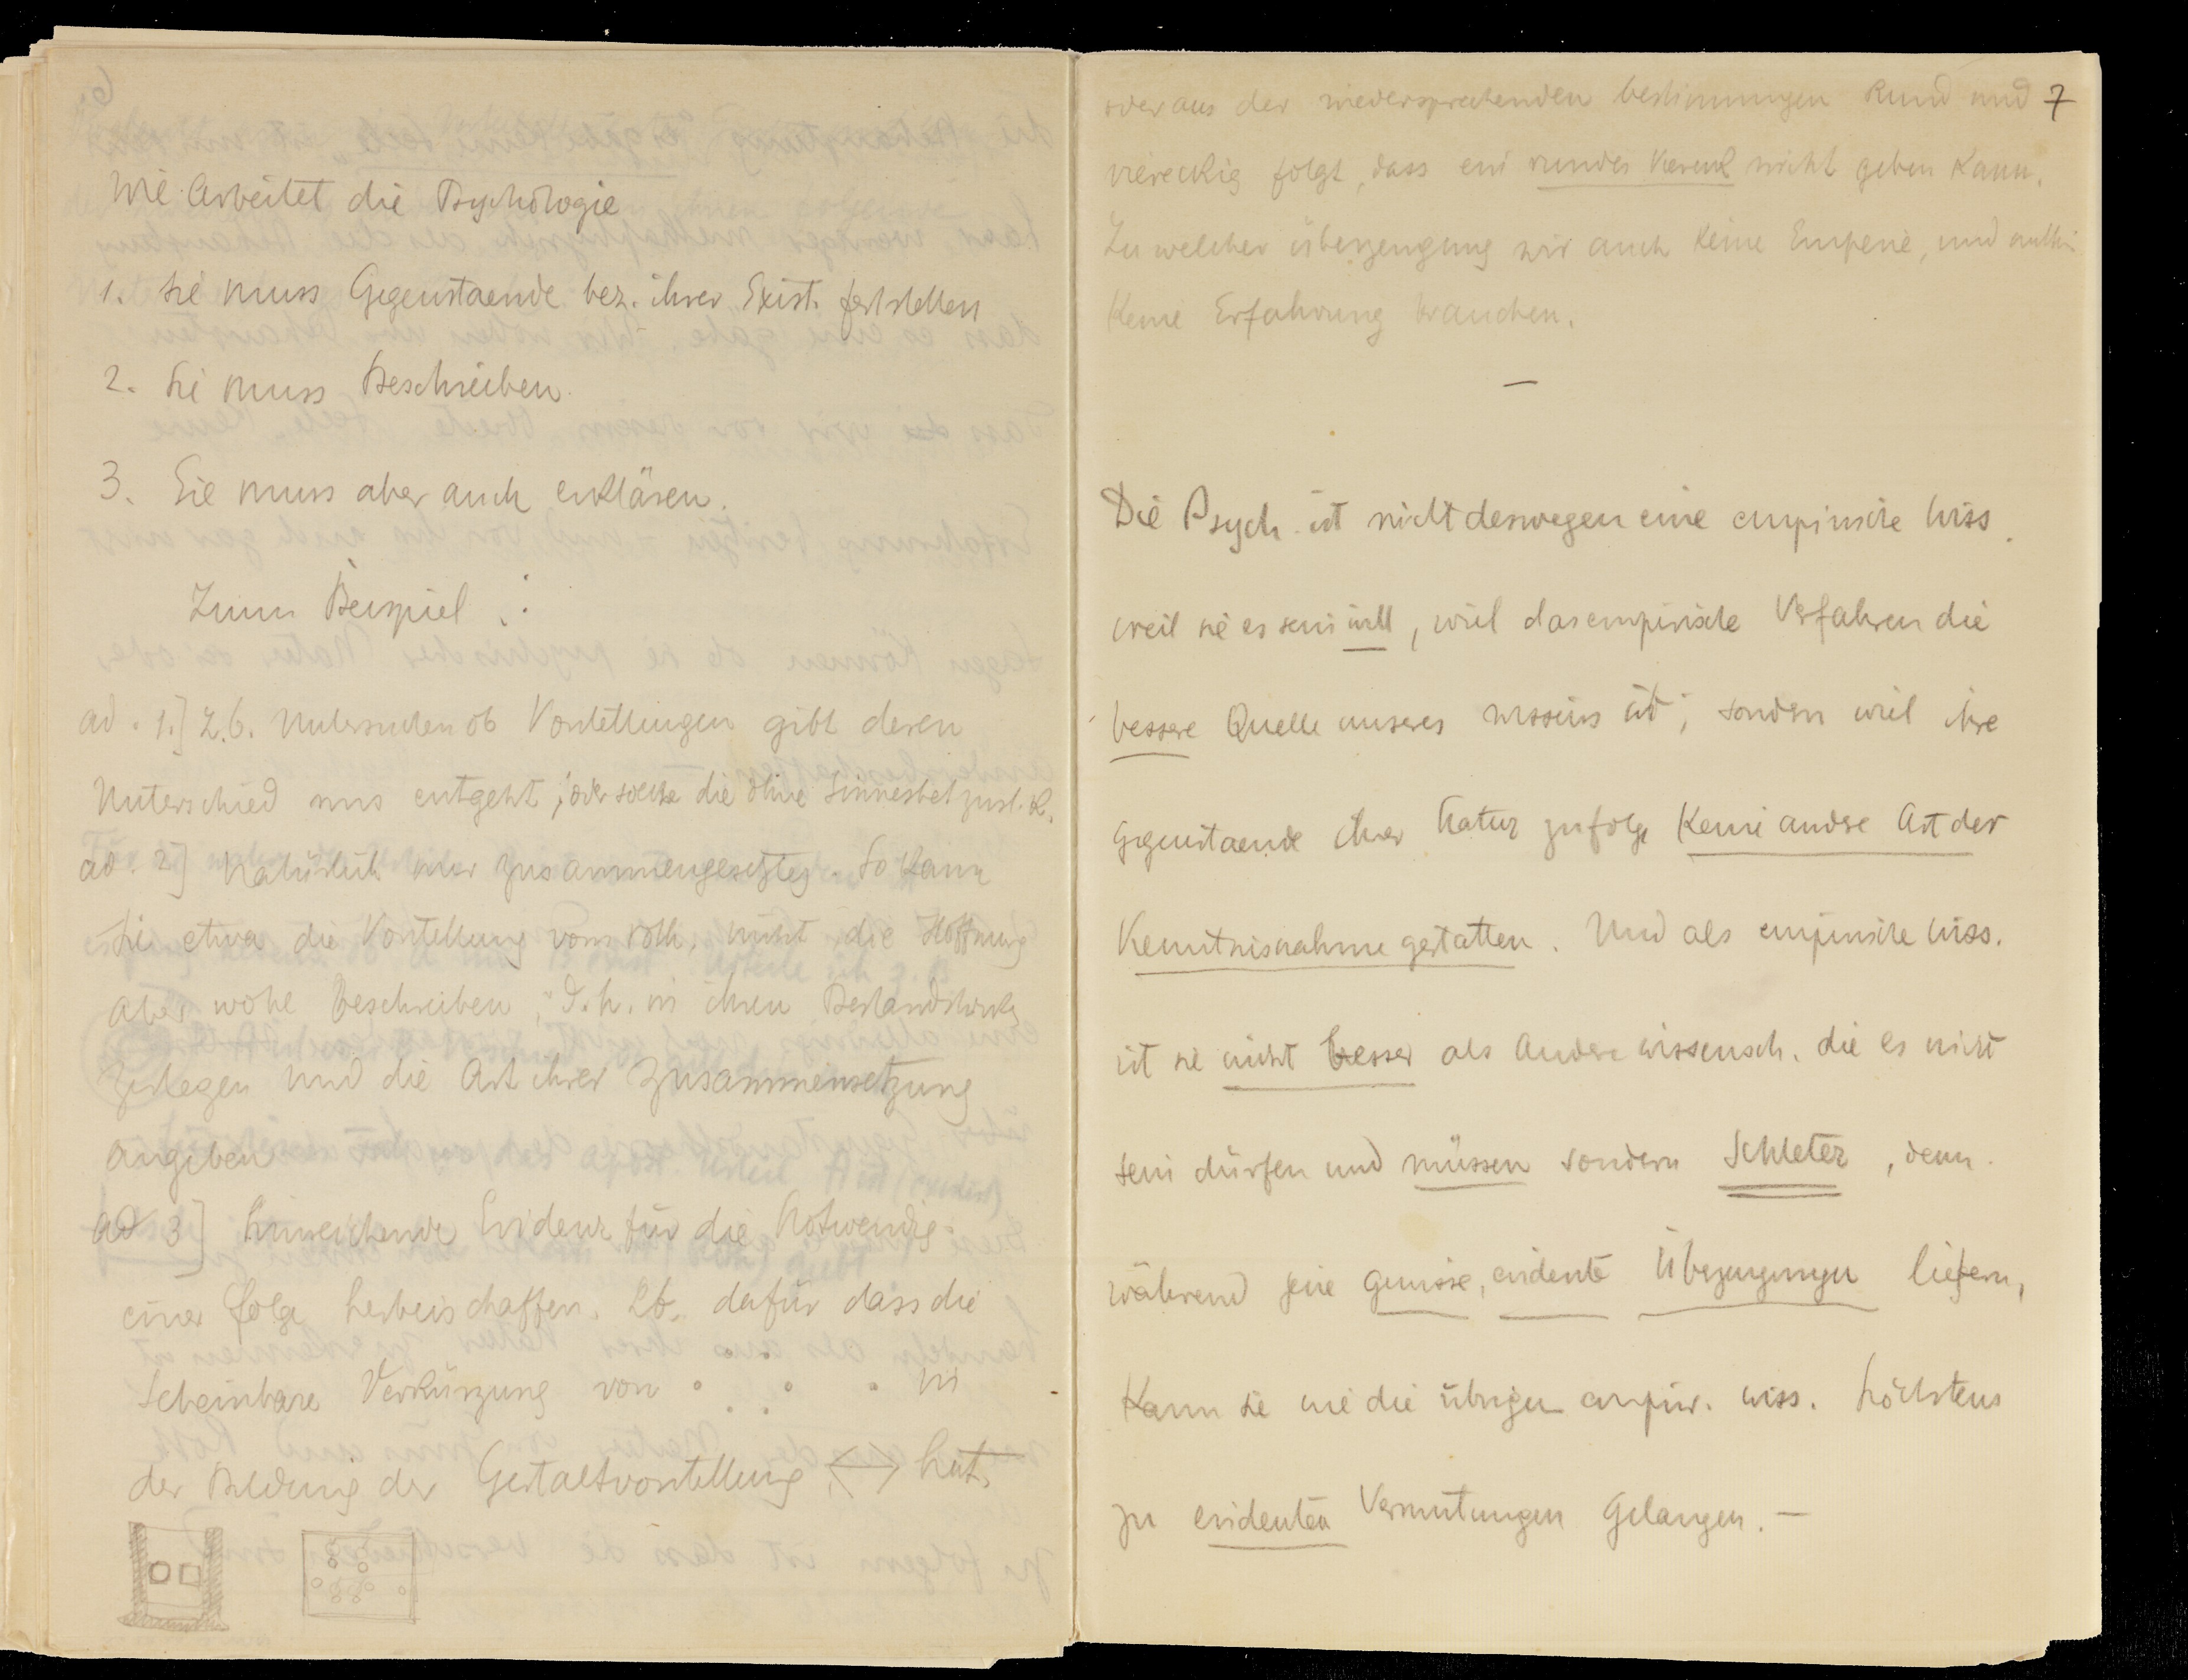 Wie Arbeitet die Psychologie
1. Sie muss Gegenstaende bez. ihrer Exist. feststellen
2. Sie muss Beschreiben.
3. Sie muss aber auch erklären.
Zum Beispiel :
ad. 1.] Z.b. Untersuchen ob Vorstellungen gibt deren
Unterschied uns entgeht, oder solche die ohne Sinnesbet. zust. K.
ad. 2] Natürlich nur zusammengesetztes. So kann
sie etwa die Vorstellung vom roth, nicht, die Hoffnung
aber wohl beschreiben, d.h. in ihren Bestandstücke
zerlegen und die Art ihrer Zusammensetzung
angeben
ad 3] hinreichende Evidenz für die Notwendig.
einer folge herbeischaffen. Zb. dafür dass die
Scheinbare Verkürzung von in
der Bildung der Gestaltvorstellung <-> hat.
7
oder aus der wiedersprechenden bestimmungen Rund und
viereckig folgt, dass ein rundes Viereck nicht geben kann.
Zu welcher überzeugung wir auch keine Emperie, und mithin
Keine Erfahrung brauchen.
—
Die Psych. ist nicht deswegen eine empirische Wiss.
weil sie es sein will, weil das empirische Verfahren die
bessere Quelle unseres wissens ist; sondern weil ihre
Gegenstaende ihrer Natur zufolge Keine andere Art der
Kenntnisnahme gestatten. Und als empirische Wiss.
ist sie nicht besser als Andere wissensch. die es nicht
sein dürfen und müssen sondern Schleter, denn
während jene gewisse, evidente Überzeugungen liefern,
Kann sie wie die übrigen empir. wiss. höchstens
zu evidenten Vermutungen Gelangen. —